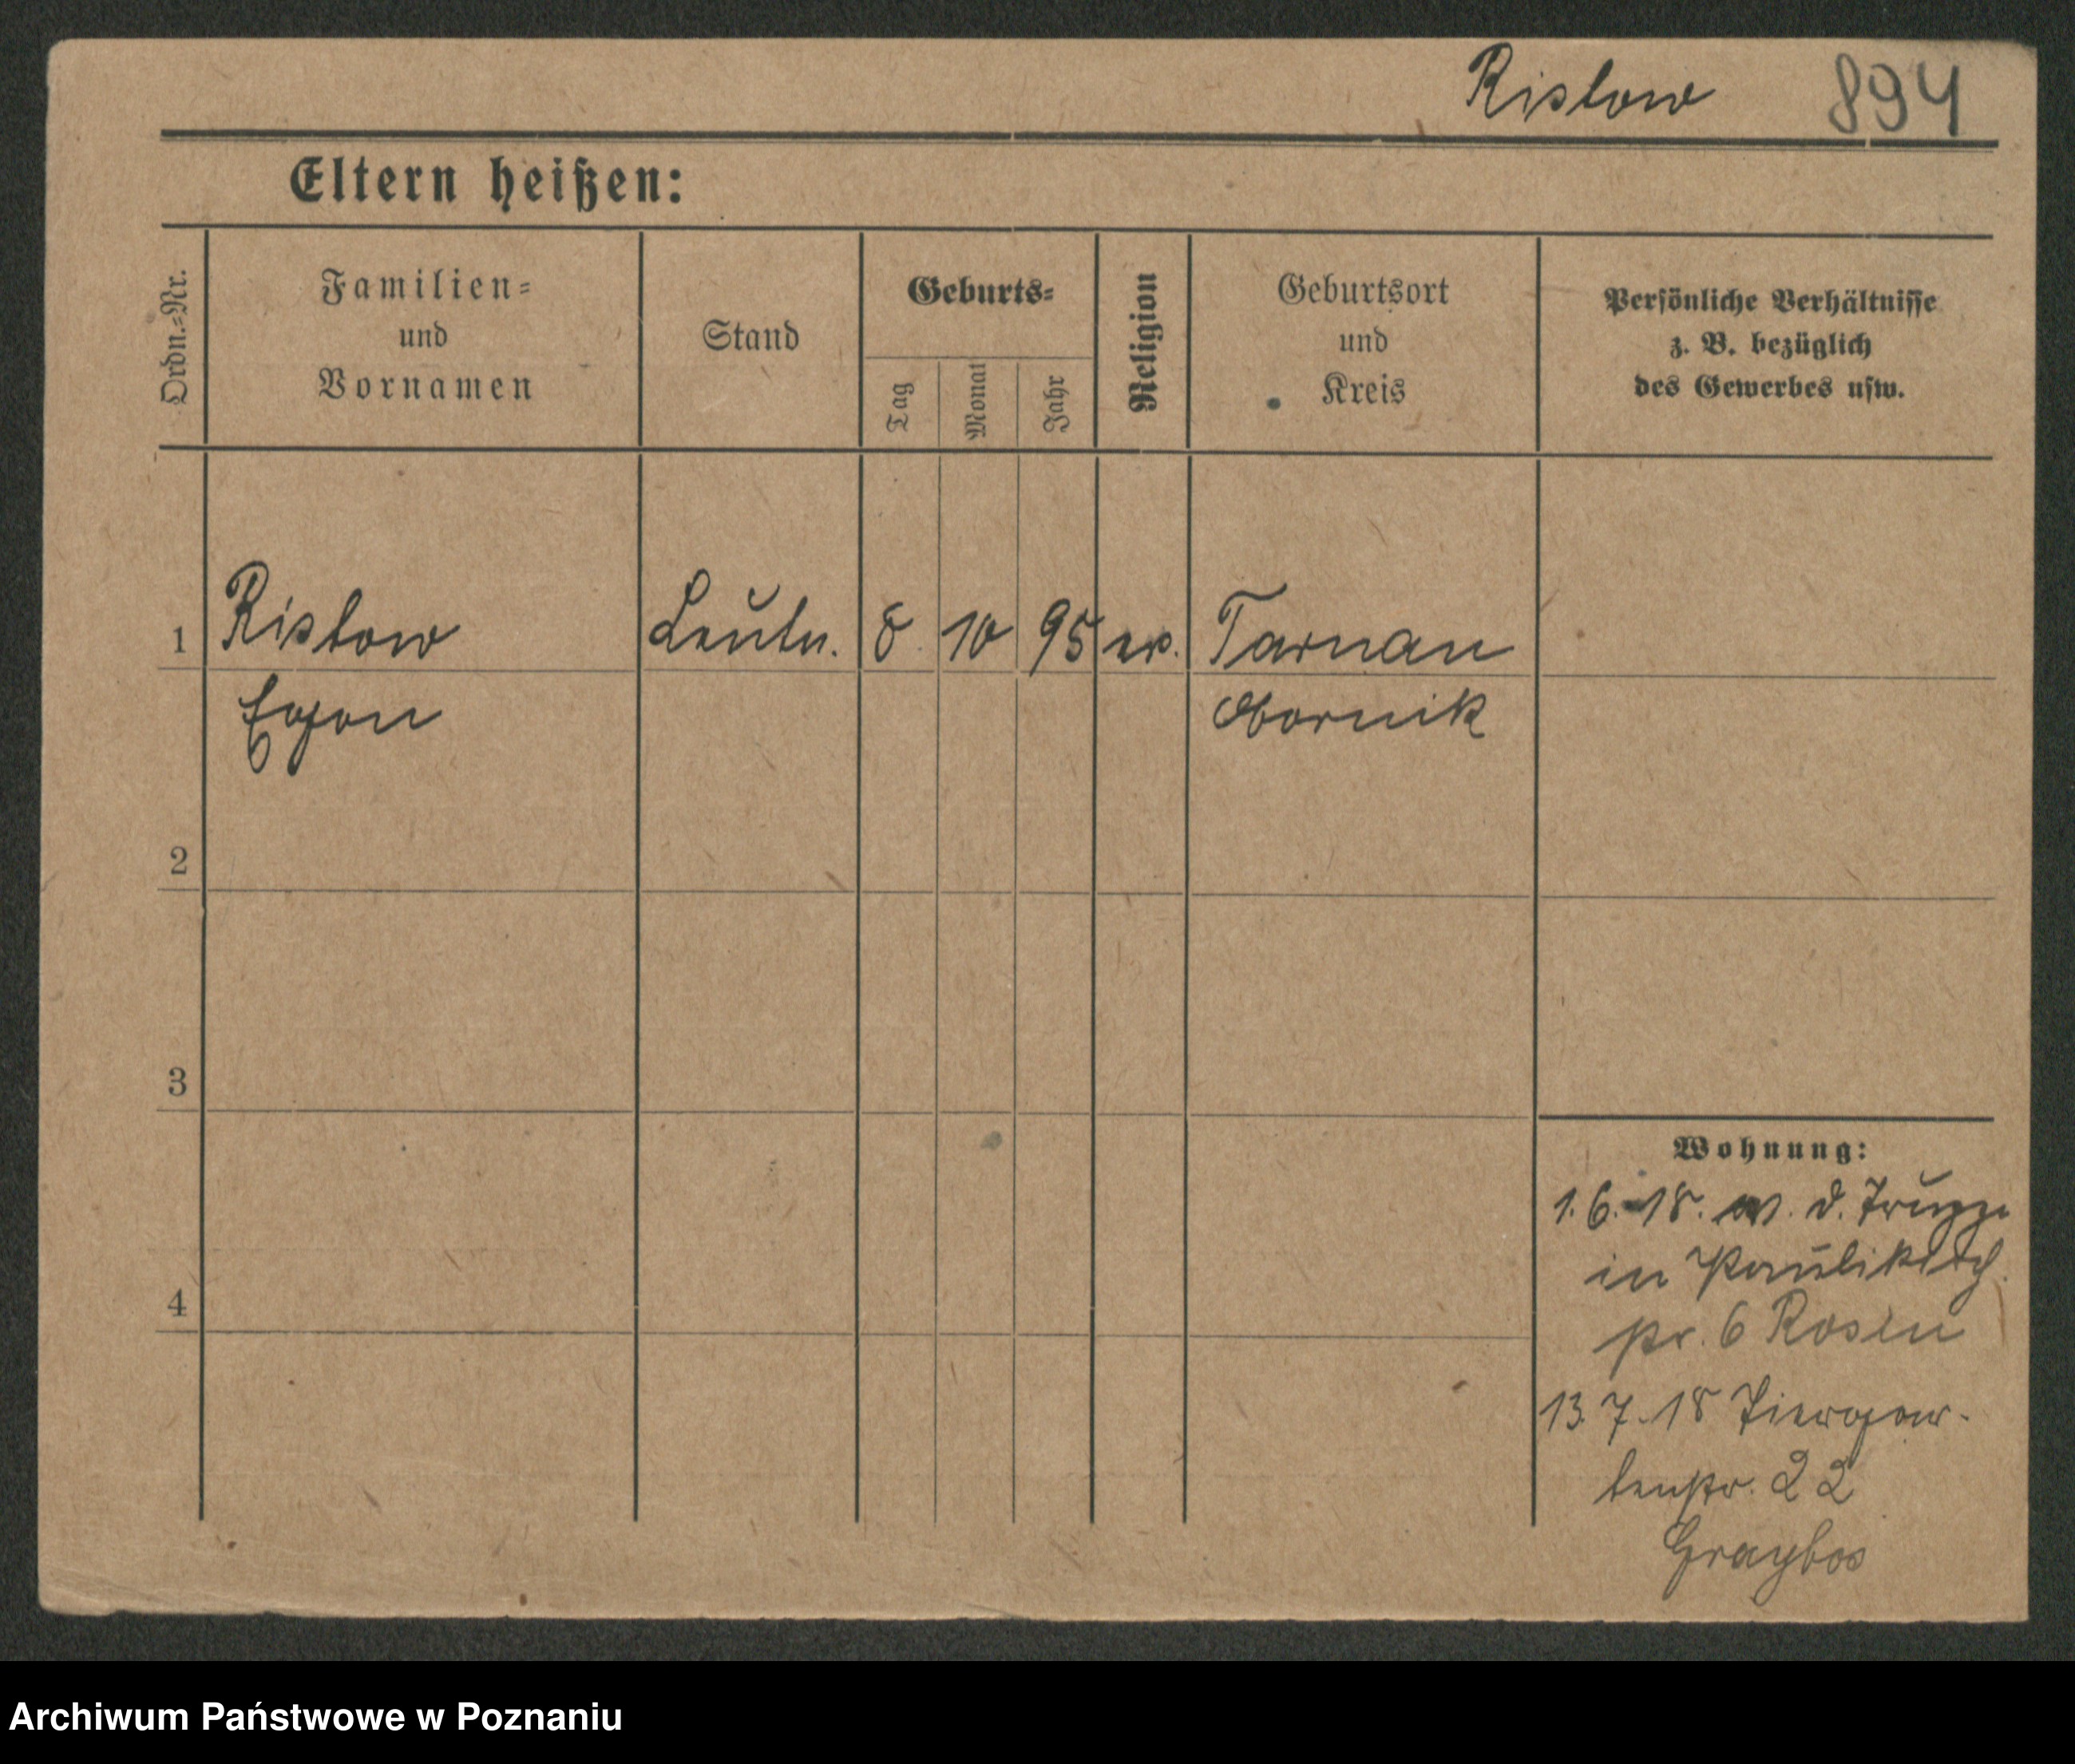 Ristow 894
Eltern heißen:
Ordn.=Nr.
Familien=
und
Vornamen
Stand
Geburts=
Tag
Monat
Jahr
Religion
Geburtsort
und
Kreis
Persönliche Verhältnisse
z. B. bezüglich
des Gewerbes usw.
1 Ristow Leutn. 8. 10 95 ev. Tarnau
Egon Obornik
2
3
4
Wohnung:
1.6.18. v. d. Truppe
in Paulikirch
str. 6 Rosen
13.7.18 Tiergar-
tenstr. 22